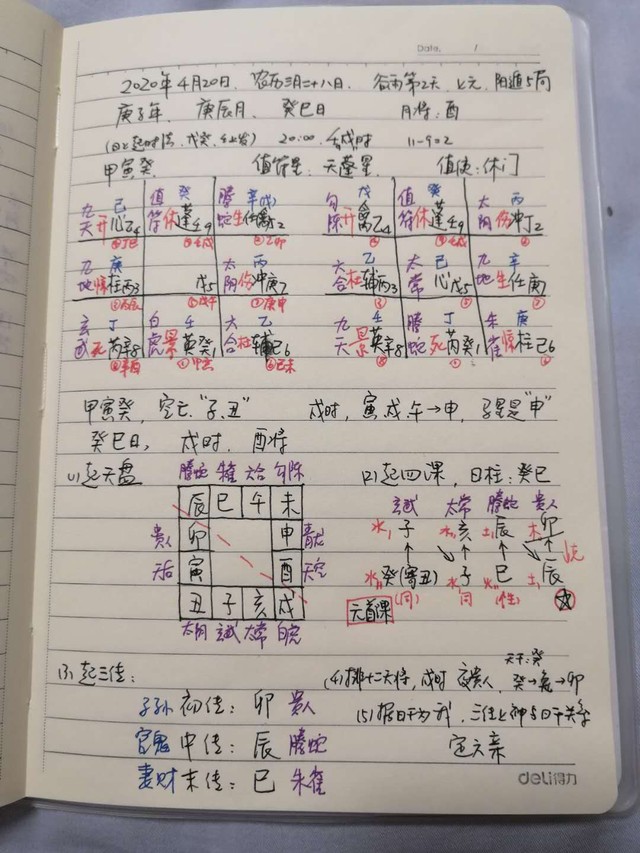 Date. /
2020年4月20日，农历三月二十八日，谷雨第2天，上元，阳遁5局
庚子年，庚辰月，癸巳日 月将：酉
20:00 戌时 11-9=2
甲寅癸 值符星：天蓬星 值使：休门
九 己 值 癸 螣 辛戊 勾 戊 值 癸 太 丙
天开心乙4 符休蓬壬9 蛇生任离丁2 陈开离乙4 符休蓬壬9 阴伤冲丁2
九 庚 太 丙 六 乙 太 己 九 辛
地惊柱丙3 戊5 阴伤冲庚7 合杜辅丙3 常心戊5 地生任庚7
玄 丁 白 壬 六 乙 九 壬 螣 丁 朱 庚
武死芮辛8 虎景英癸1 合杜辅己6 天景英辛8 蛇死芮癸1 雀惊柱己6
甲寅癸，空亡"子、丑" 戌时，寅戌午→申，驿马是"申"
癸巳日，戌时，酉将
(1)起天盘 螣蛇 朱雀 六合 勾陈 (2)起四课，日柱：癸巳
辰 巳 午 未 玄武 太常 螣蛇 贵人
贵人 卯 申 青龙 水 子 水 亥 土 辰 木 卯
天后 寅 酉 天空 水 癸(寄丑) 水 子 火 巳 土 辰
丑 子 亥 戌 元首课
太阴 玄武 太常 白虎
(3)起三传： (4)排十二天将，戌时 夜贵人，天干：癸 癸→兔→卯
子孙 初传：卯 贵人 (5)据日干为我，三传上神与日干关系
官鬼 中传：辰 螣蛇 定六亲
妻财 末传：巳 朱雀
deli得力